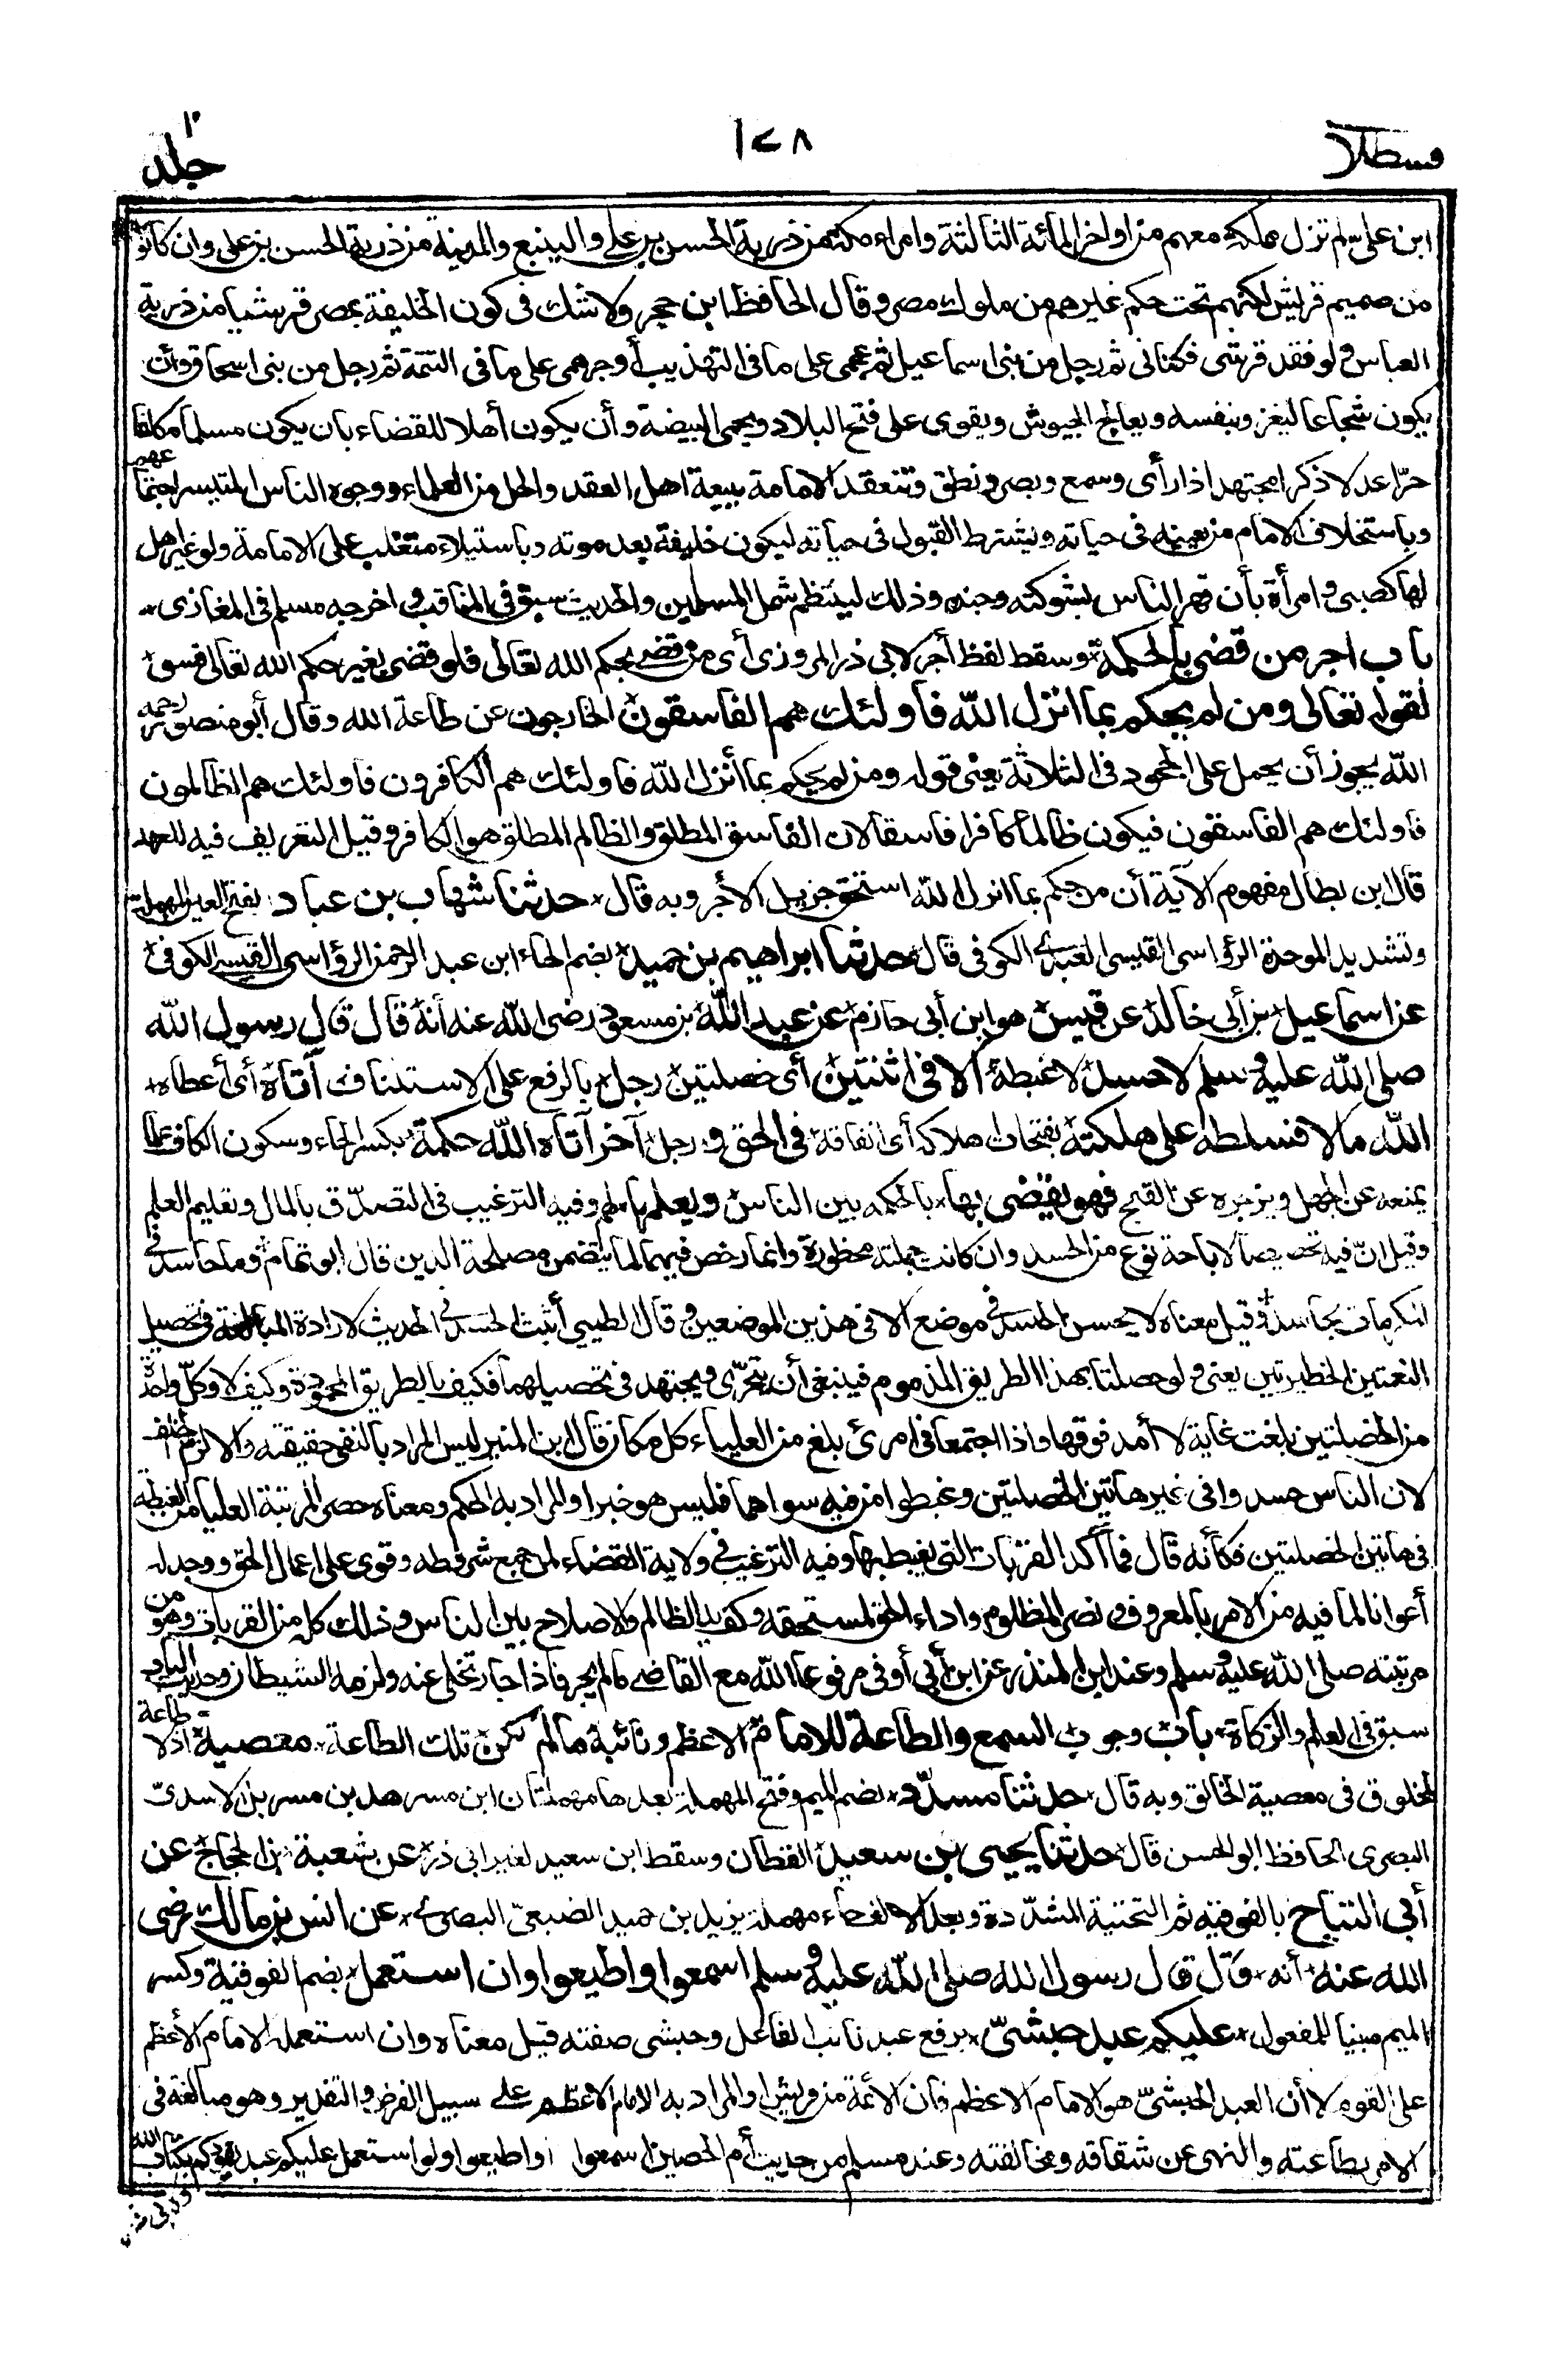 قسطلا
١٢٨
جلد ١٠
ابن على لم تزل مملكة معهم من اواخر المائة الثالثة وامراء مكة من ذرية الحسن بن على والينبع والمدينة من ذرية الحسن بن على وان كانوا
من صميم قريش لكنهم تحت حكم غيرهم من ملوك مصر وقال الحافظ ابن حجر ولا شك فى كون الخليفة بمصر قرشيا من ذرية
العباس ولو فقد قرشى فكنانى ثم رجل من بنى اسماعيل ثم عجمى على ما فى التهذيب أو جرهمى على ما فى التتمة ثم رجل من بنى اسحاق وأن
يكون شجاعا ليغزو بنفسه ويعالج الجيوش ويقوى على فتح البلاد ويحمى البيضة وأن يكون أهلا للقضاء بان يكون مسلما مكلفا
حرّا عدلا ذكرا مجتهدا ذا رأى وسمع وبصر ونطق وتنعقد الامامة ببيعة اهل العقد والحل من العلماء ووجوه الناس المتيسر اجتماعهم
وباستخلاف الامام من يعينه فى حياته ويشترط القبول فى حياته ليكون خليفة بعد موته وباستيلاء متغلب على الامامة ولو غير اهل
لها كصبى وامرأة بأن قهر الناس بشوكته وجنده وذلك لينتظم شمل المسلمين والحديث سبق فى المناقب واخرجه مسلم فى المغازى
باب اجر من قضى بالحكمة وسقط لفظ أجر لابى ذر المروزى أى من قضى بحكم الله تعالى فلو قضى بغير حكم الله تعالى فسق
لقوله تعالى ومن لم يحكم بما انزل الله فاولئك هم الفاسقون الخارجون عن طاعة الله وقال أبو منصور رحمه
الله يجوز أن يحمل على الجحود فى الثلاثة يعنى قوله ومن لم يحكم بما أنزل الله فاولئك هم الكافرون فاولئك هم الظالمون
فاولئك هم الفاسقون فيكون ظالما كافرا فاسقا لان الفاسق المطلق والظالم المطلق هو الكافر وقيل التعريف فيه للعهد
قال ابن بطال مفهوم الآية أن من حكم بما انزل الله استحق جزيل الأجر وبه قال حدثنا شهاب بن عباد بفتح العين المهملة
وتشديد الموحدة الرؤاسى القيسى العبدى الكوفى قال حدثنا ابراهيم بن حميد بضم الحاء ابن عبد الرحمن الرؤاسى القيسى الكوفى
عن اسماعيل بن أبى خالد عن قيس هو ابن أبى حازم عن عبد الله بن مسعود رضى الله عنه أنه قال قال رسول الله
صلى الله عليه وسلم لا حسد لا غبطة الا فى اثنتين أى خصلتين رجل بالرفع على الاستئناف آتاه أى أعطاه
الله مالا فسلطه على هلكته بفتحات هلاكه أى انفاقه فى الحق و رجل آخر آتاه الله حكمة بكسر الحاء وسكون الكاف علما
يمنعه عن الجهل ويزجره عن القبح فهو يقضى بها بالحكمة بين الناس ويعلمها لهم وفيه الترغيب فى التصدّق بالمال وتعليم العلم
وقيل انّ فيه تخصيصا لاباحة نوع من الحسد وان كانت جملته محظورة وانما رخص فيهما لما يتضمن مصلحة الدين قال ابو تمام وما حاسد فى
المكرمات بحاسد وقيل معناه لا يحسن الحسد فى موضع الا فى هذين الموضعين وقال الطيبي أثبت الحسد فى الحديث لارادة المبالغة فى تحصيل
النعمتين الخطيرتين يعنى ولو حصلتا بهذا الطريق المذموم فينبغى أن يتحرّى ويجتهد فى تحصيلهما فكيف بالطريق المحمودة وكيف لا وكلّ واحدة
من الخصلتين بلغت غاية لا أمد فوقها واذا اجتمعا فى امرئ بلغ من العلياء كل مكان قال ابن المنير ليس المراد بالنفى حقيقته والا لزم الخلف
لان الناس حسدوا فى غير هاتين الخصلتين وغبطوا من فيه سواهما فليس هو خبرا والمراد به الحكم ومعناه حصر المرتبة العليا من الغبطة
فى هاتين الخصلتين فكأنه قال هما أكد القربات التى يغبط بها وفيه الترغيب فى ولاية القضاء لمن جمع شروطه وقوى على اعمال الحق ووجد له
أعوانا لما فيه من الامر بالمعروف ونصر المظلوم واداء الحق لمستحقه وكف يد الظالم والاصلاح بين الناس وذلك كله من القربات وهو من
مرتبته صلى الله عليه وسلم وعند ابن المنذر عن ابن أبى أوفى مرفوعا الله مع القاضى ما لم يجر فاذا جار تخلى عنه ولزمه الشيطان وحديث الباب
سبق فى العلم والزكاة باب وجوب السمع والطاعة للامام الاعظم ونائبه ما لم تكن تلك الطاعة معصية اذ لا طاعة
لمخلوق فى معصية الخالق وبه قال حدثنا مسدّد بضم الميم وفتح المهملة بعدها مهملتان ابن مسرهد بن مسربل الاسدىّ
البصرى الحافظ ابو الحسن قال حدثنا يحيى بن سعيد القطان وسقط ابن سعيد لغير ابى ذر عن شعبة بن الحجاج عن
أبى التياح بالفوقية ثم التحتية المشدّدة وبعد الالف حاء مهملة يزيد بن حميد الضبعىّ البصرى عن انس بن مالك رضى
الله عنه أنه قال قال رسول الله صلى الله عليه وسلم اسمعوا واطيعوا وان استعمل بضم الفوقية وكسر
الميم مبنيا للمفعول عليكم عبد حبشىّ برفع عبد نائب الفاعل وحبشى صفته قيل معناه وان استعمله الامام الأعظم
على القوم لا أن العبد الحبشىّ هو الامام الاعظم فان الائمة من قريش او المراد به الامام الاعظم على سبيل الفرض والتقدير وهو مبالغة فى
الامر بطاعته والنهى عن شقاقه ومخالفته وعند مسلم من حديث أم الحصين اسمعوا واطيعوا ولو استعمل عليكم عبد يقودكم بكتاب الله